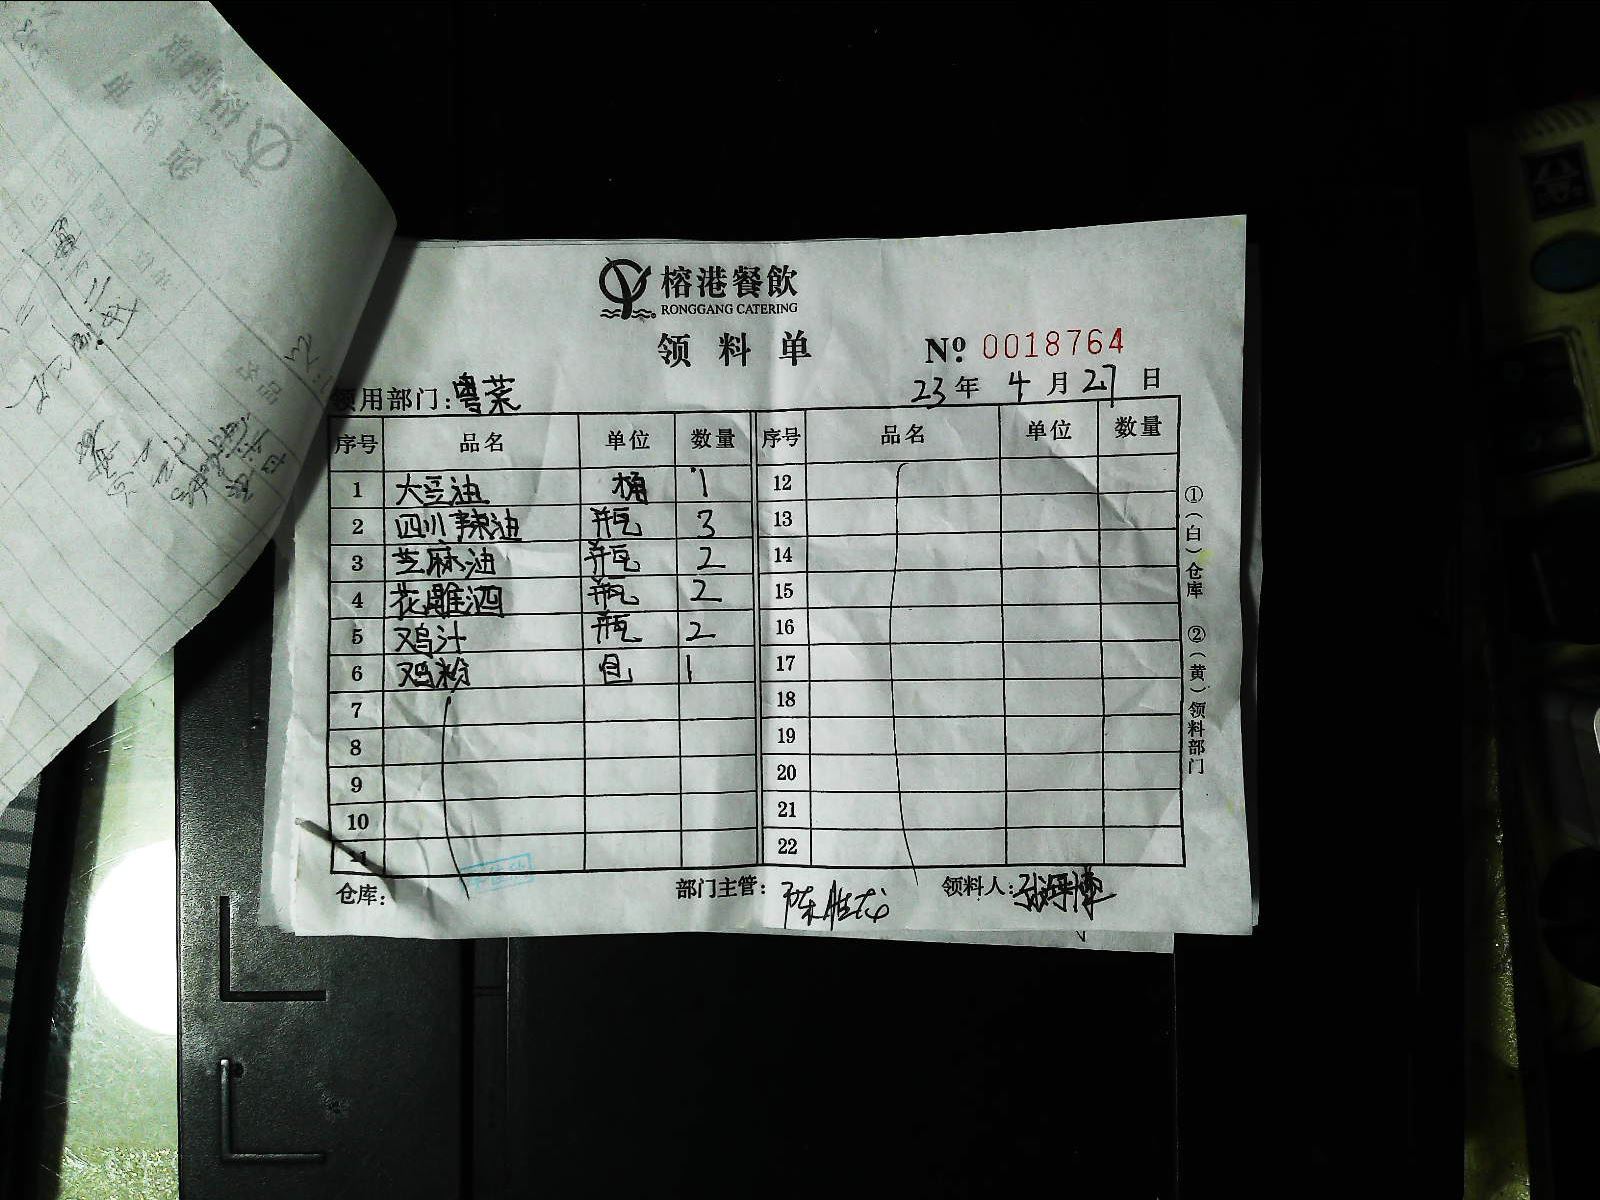 榕港餐飲
RONGGANG CATERING
领料单
№ 0018764
领用部门：粤菜 23年 4月 27日
序号 品名 单位 数量 序号 品名 单位 数量
1 大豆油 桶 1 12
2 四川辣油 瓶 3 13
3 芝麻油 瓶 2 14
4 花雕酒 瓶 2 15
5 鸡汁 瓶 2 16
6 鸡粉 包 1 17
7 18
8 19
9 20
10 21
11 22
仓库： 部门主管： 领料人：
①（白）仓库 ②（黄）领料部门